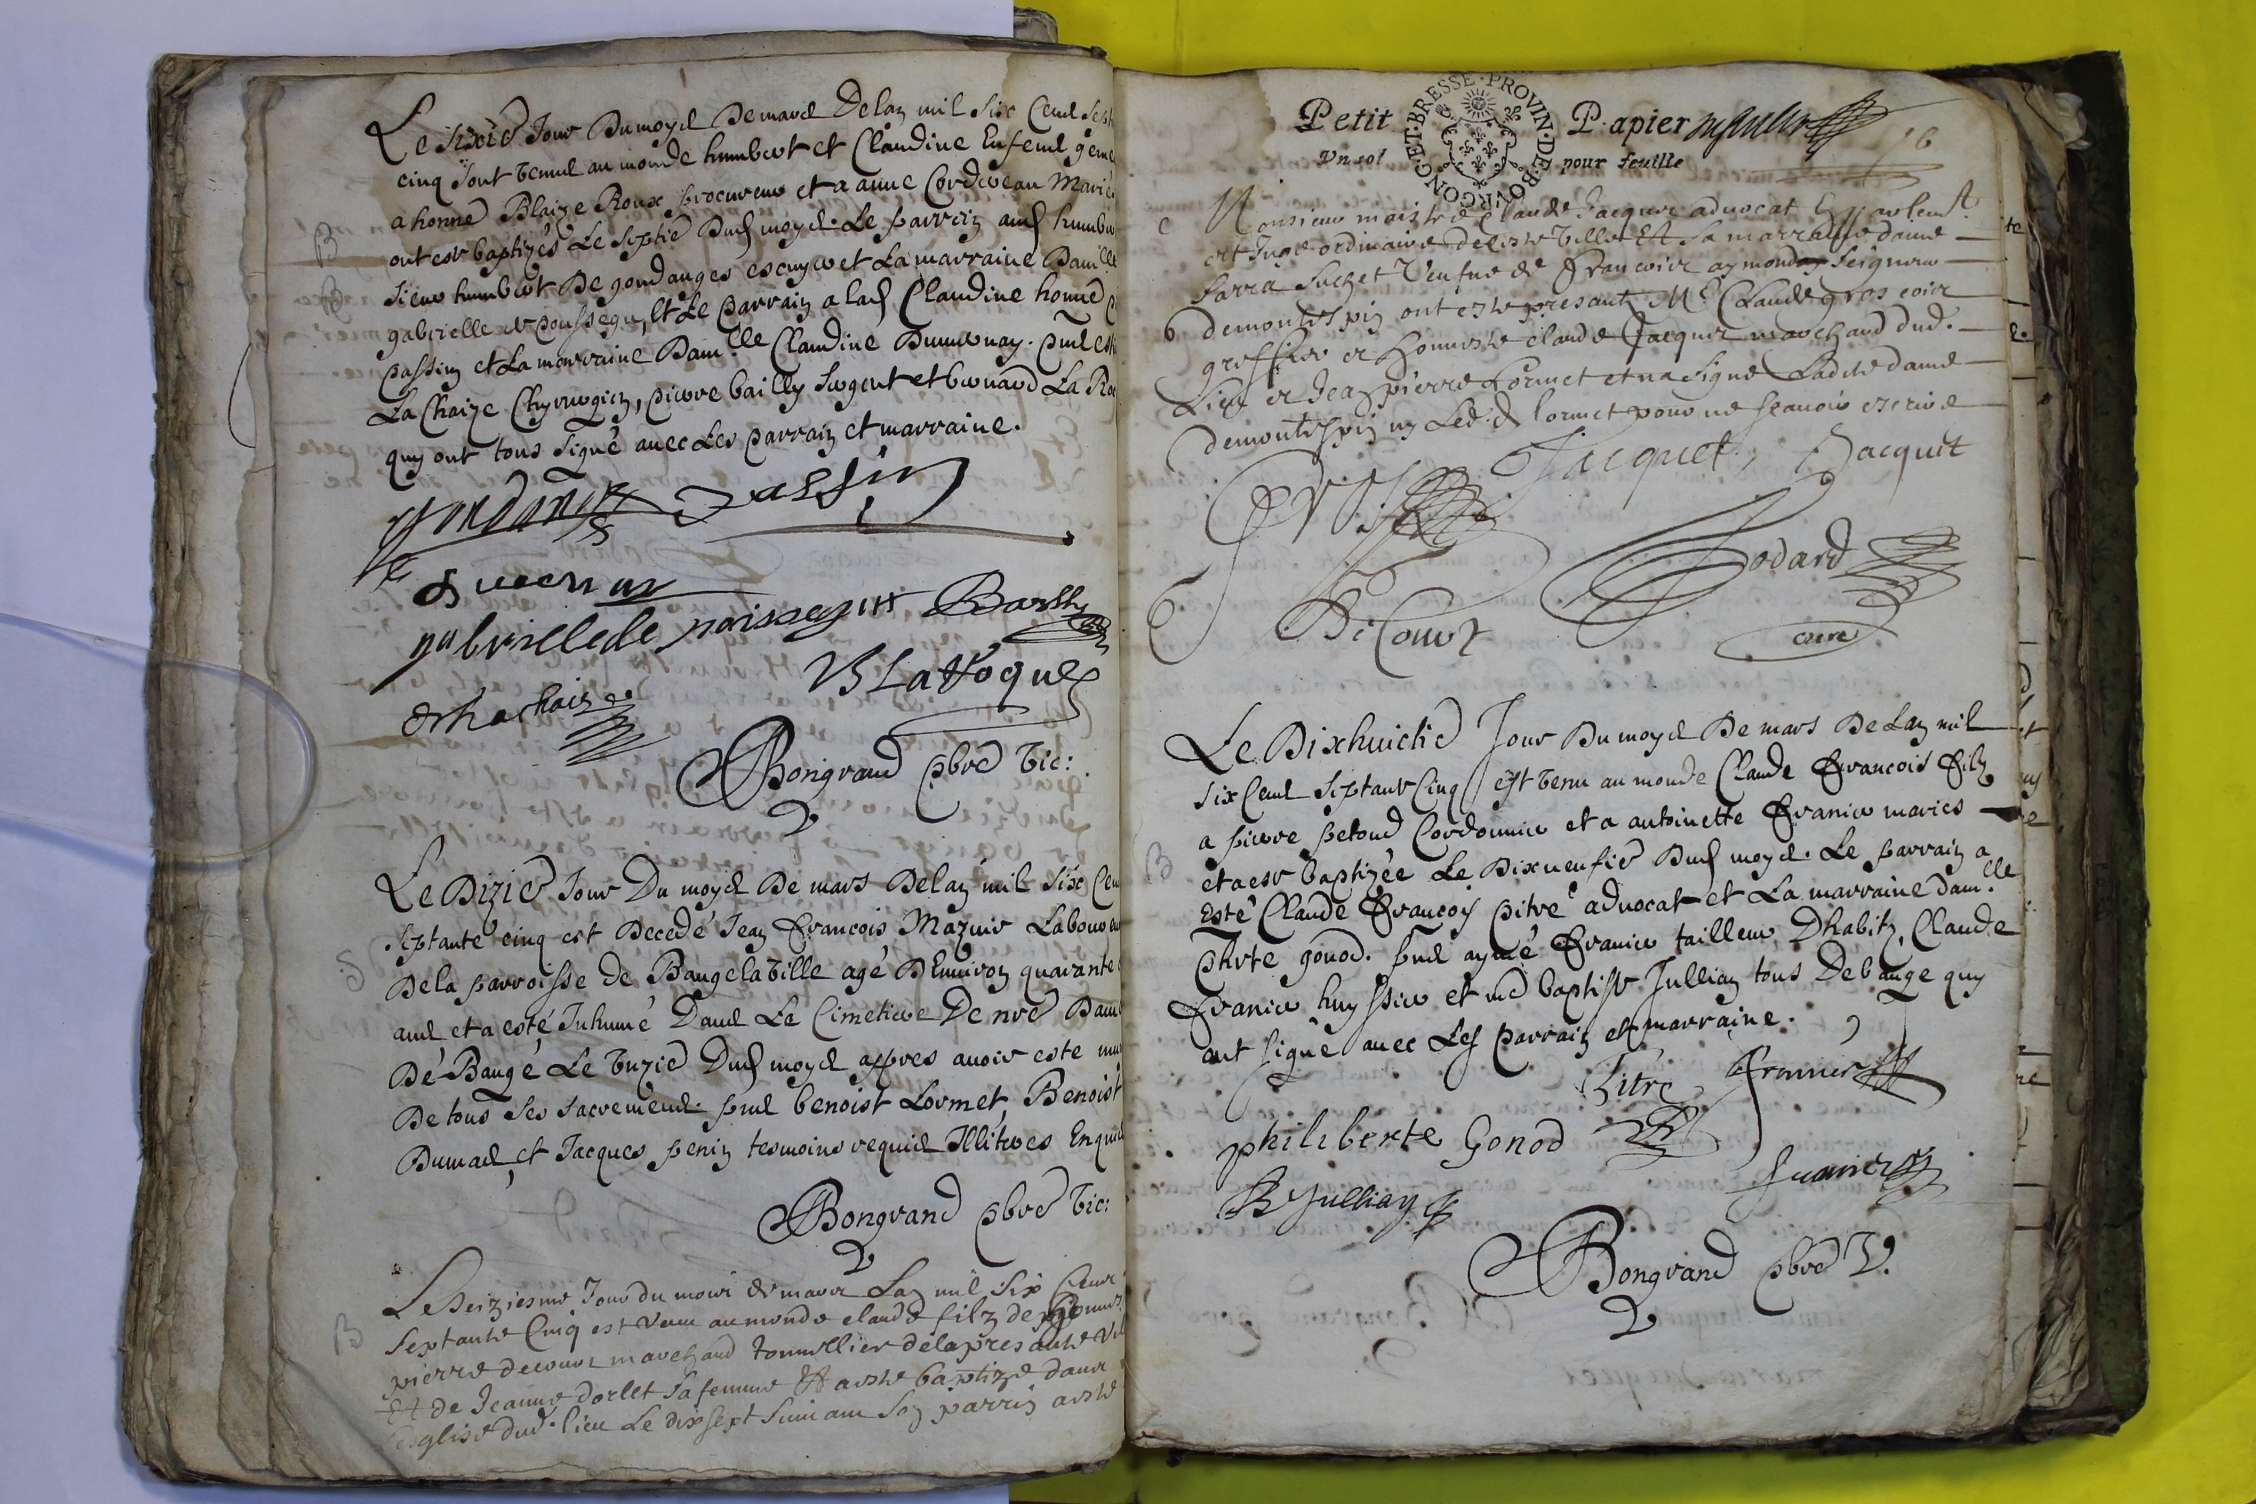 Le sixie Jour Du moys De mars De lan mil six Cens sept
cinq sont venus au monde humbert et Claudine Enfens geme
a honne Blaize Roux procureur et a anne Cordeveau Mariés
B
ont este baptizés Le septie Dud moys. Le parrain aud humber
sieur humbert De gondanges escuyer et La marraine Dam.lle
gabrielle et Le parrain a lad Claudine honne
passin et La marraine Dam.lle Claudine Duvernay. pnt
La Chaize Chyrurgien, pierre bailly sergent et bernard La Ro
quy ont tous signé avec Les parrain et marraine.
gondanges passin
duvernay
gabrielle de Bailly
B LaRoque
de la chaize
Bongrand pbre vic:
Le Dizie Jour Du moys De mars De lan mil six Cen
septante cinq est Decedé Jean François Mazuir Laboureu
S
De la parroisse de Baugé la ville agé D'Environ quarante
ans et a esté Inhumé Dans Le Cimetiere De nre Dame
De Baugé Le unzie Dud moys appres avoir esté mu
De tous ses sacremens. pns benoist Lormet, Benoist
Dumas, et Jacques penin tesmoins requis Illiteres Enquis
Bongrand pbre vic:
Le seiziesme Jour du mois de mars Lan mil six Cens
B
septante Cinq est venu au monde claude filz de honnes
pierre decourt marchand tonnellier de la presante vil
Et de Jeanne dorlet sa femme Et a esté baptizé dans
l'eglise dud. lieu Le dixsept suivant son parrin a esté
Petit Papier
Un sol pour feuille
BOVRGONG·ET·BRESSE·PROVIN·DE·
16
Monsieur maistre Claude Jacquet advocat En parlem.t
et Juge ordinaire de ceste ville Et sa marraine dame
Sarra Suchet veufue de François aymond seigneur
demontespin ont esté presants M.e Claude gros
greffier et honneste claude Jacquet marchand dud.
Lieu et Jean pierre Lormet et na signé Ladite dame
demontespin ny Led. Lormet pour ne sçavoir escrire
Gros Jacquet, Jacquet
Godard
De Court
curé
Le Dixhuictie Jour Du moys De mars De Lan mil
six Cens septante Cinq est venu au monde Claude François Filz
a pierre petoud Cordonnier et a antoinette Franier mariés
B
et a este baptizée Le Dixneufie Dud moys. Le parrain a
Esté Claude François pitre advocat et La marraine dam.lle
phrte gonod. pns aymé Franier tailleur D'habitz, Claude
Franier huyssier et me baptiste Jullian tous De bauge quy
ont signé avec Les parrain et marraine.
Pitre Franier
philiberte Gonod
B Jullian franier
Bongrand pbre V.